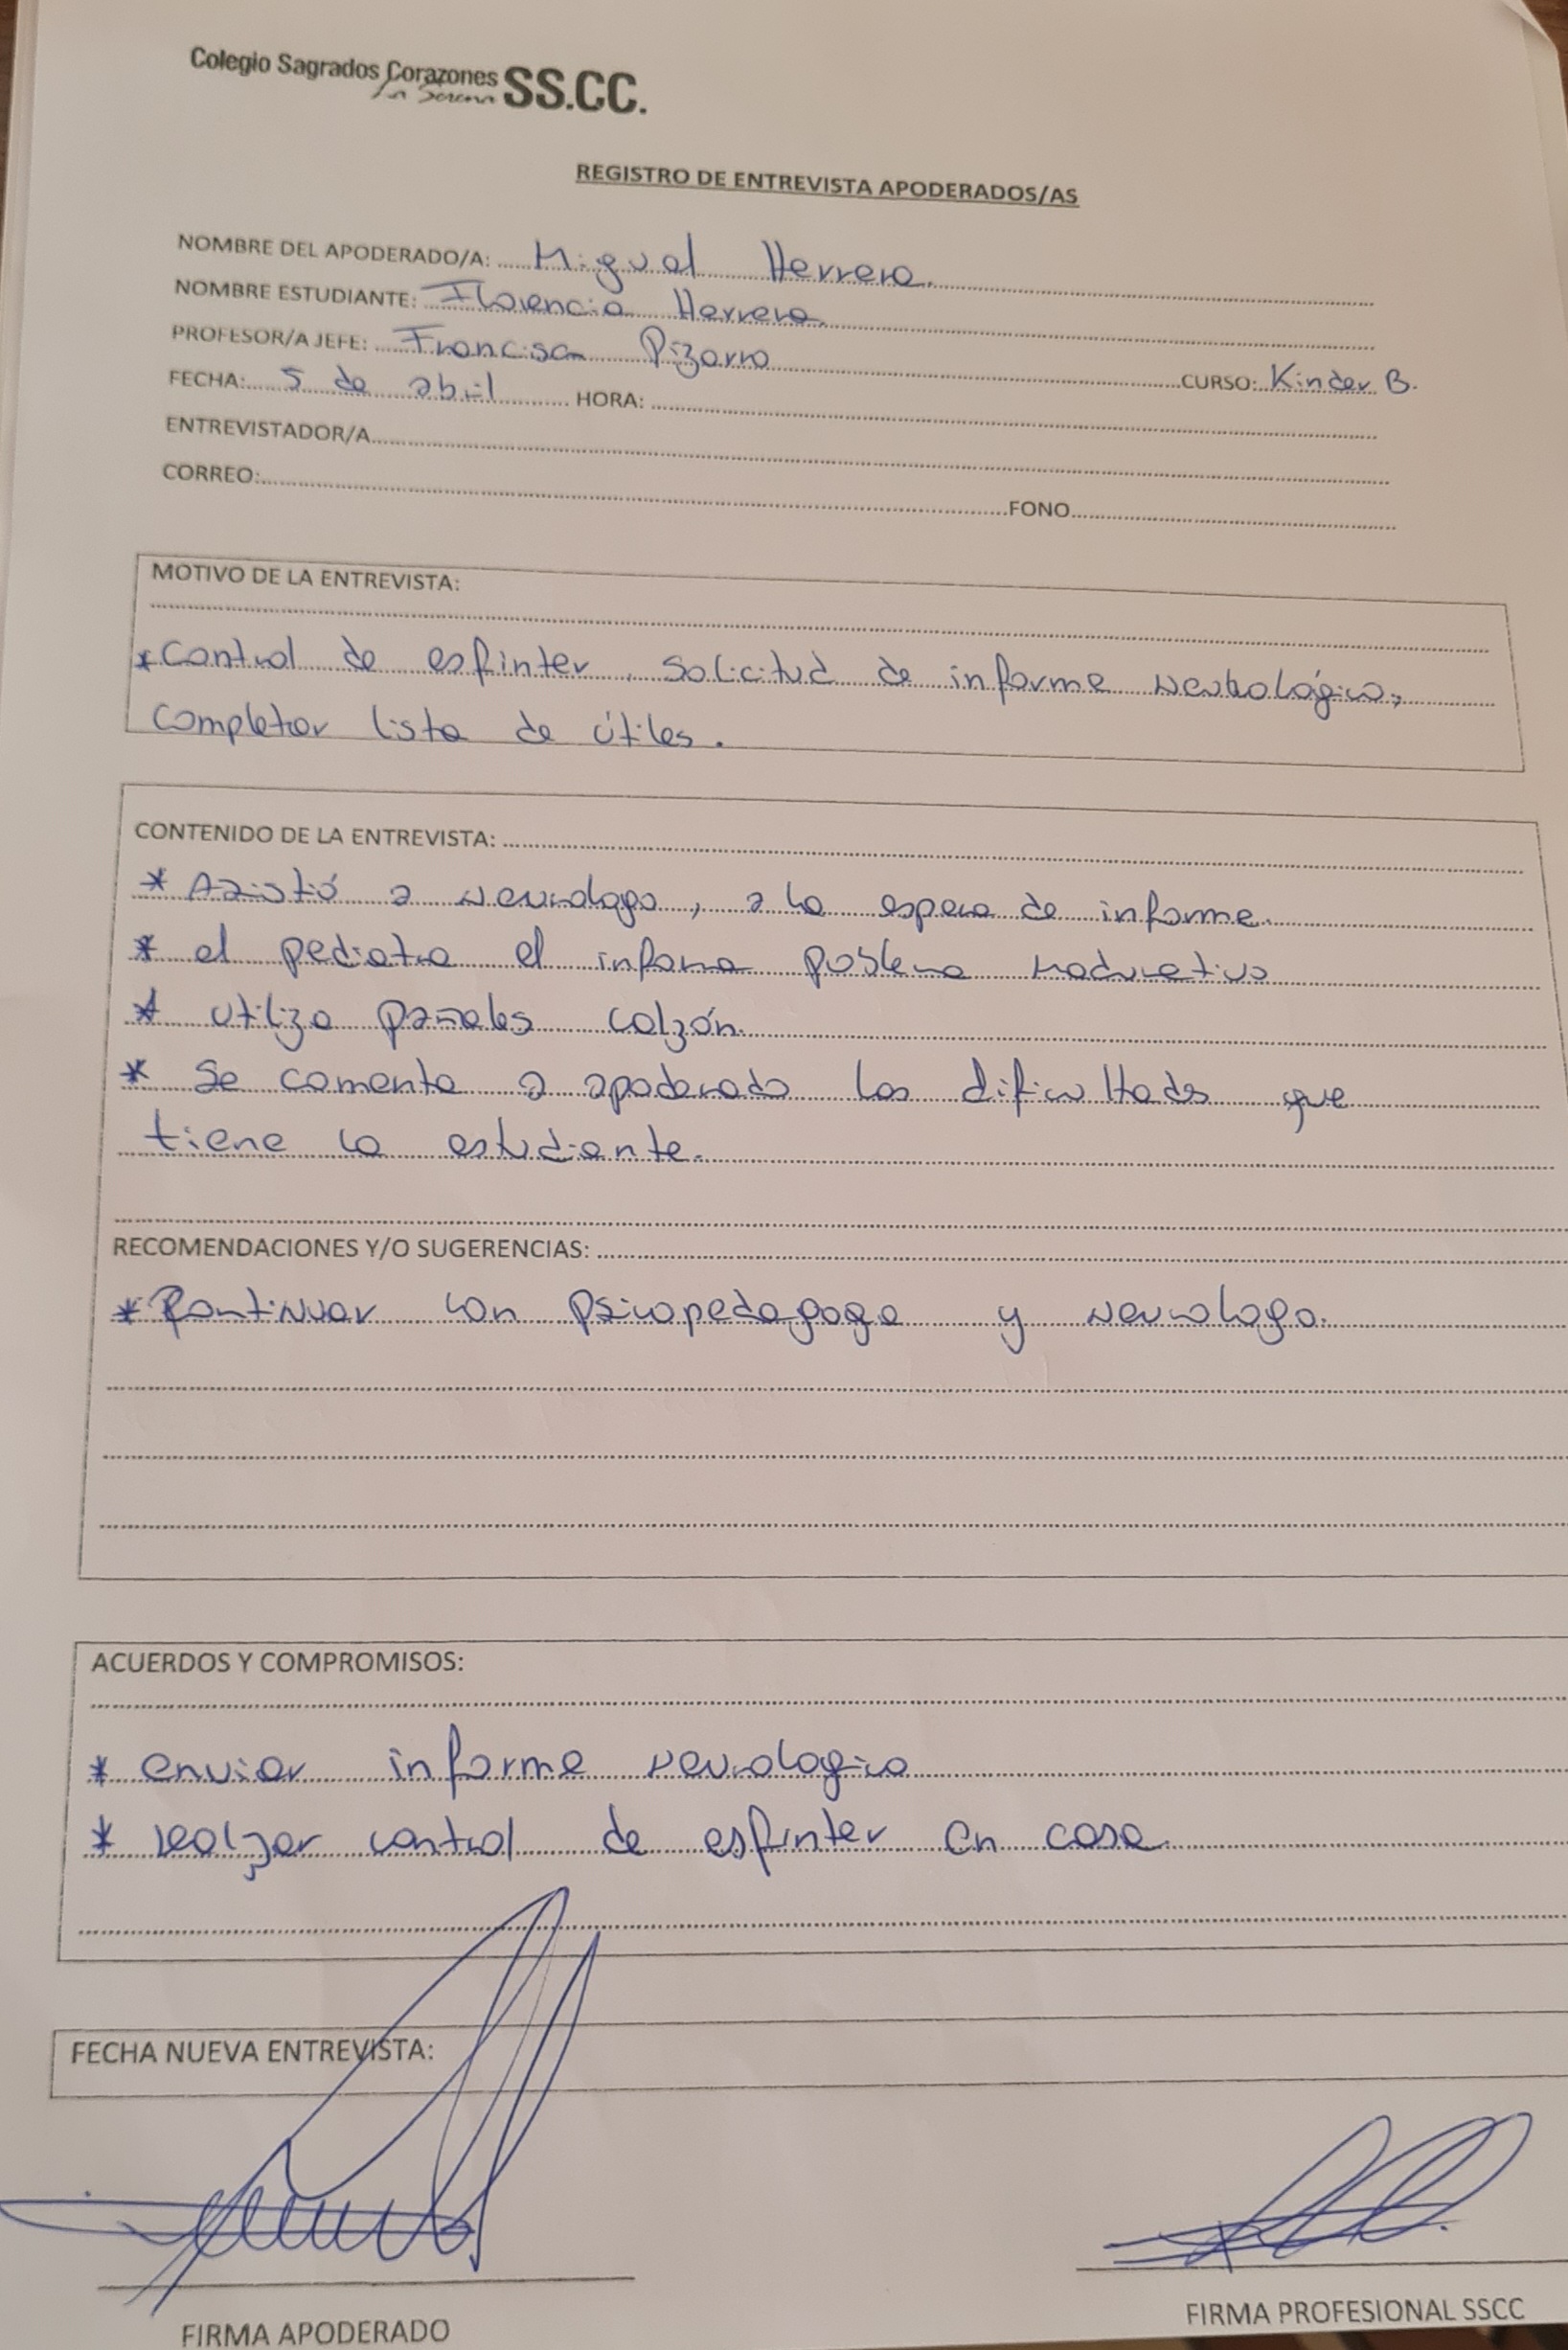 Colegio Sagrados Corazones SS.CC.
La Serena
REGISTRO DE ENTREVISTA APODERADOS/AS
NOMBRE DEL APODERADO/A: Miguel Herrera.
NOMBRE ESTUDIANTE: Florencia Herrera.
PROFESOR/A JEFE: Francisca Pizarro CURSO: Kinder B.
FECHA: 5 de abril HORA:
ENTREVISTADOR/A
CORREO: FONO
MOTIVO DE LA ENTREVISTA:
* Control de esfinter, solicitud de informe neurológico,
completar lista de útiles.
CONTENIDO DE LA ENTREVISTA:
* Asistió a neurologo, a la espera de informe.
* el pediatra el informa madurativo
* utiliza pañales calzón.
* Se comenta a apoderado las dificultades que
tiene la estudiante.
RECOMENDACIONES Y/O SUGERENCIAS:
* Continuar con psicopedagoga y neurologo.
ACUERDOS Y COMPROMISOS:
* enviar informe neurologico
* realizar control de esfinter en casa
FECHA NUEVA ENTREVISTA:
FIRMA APODERADO
FIRMA PROFESIONAL SSCC